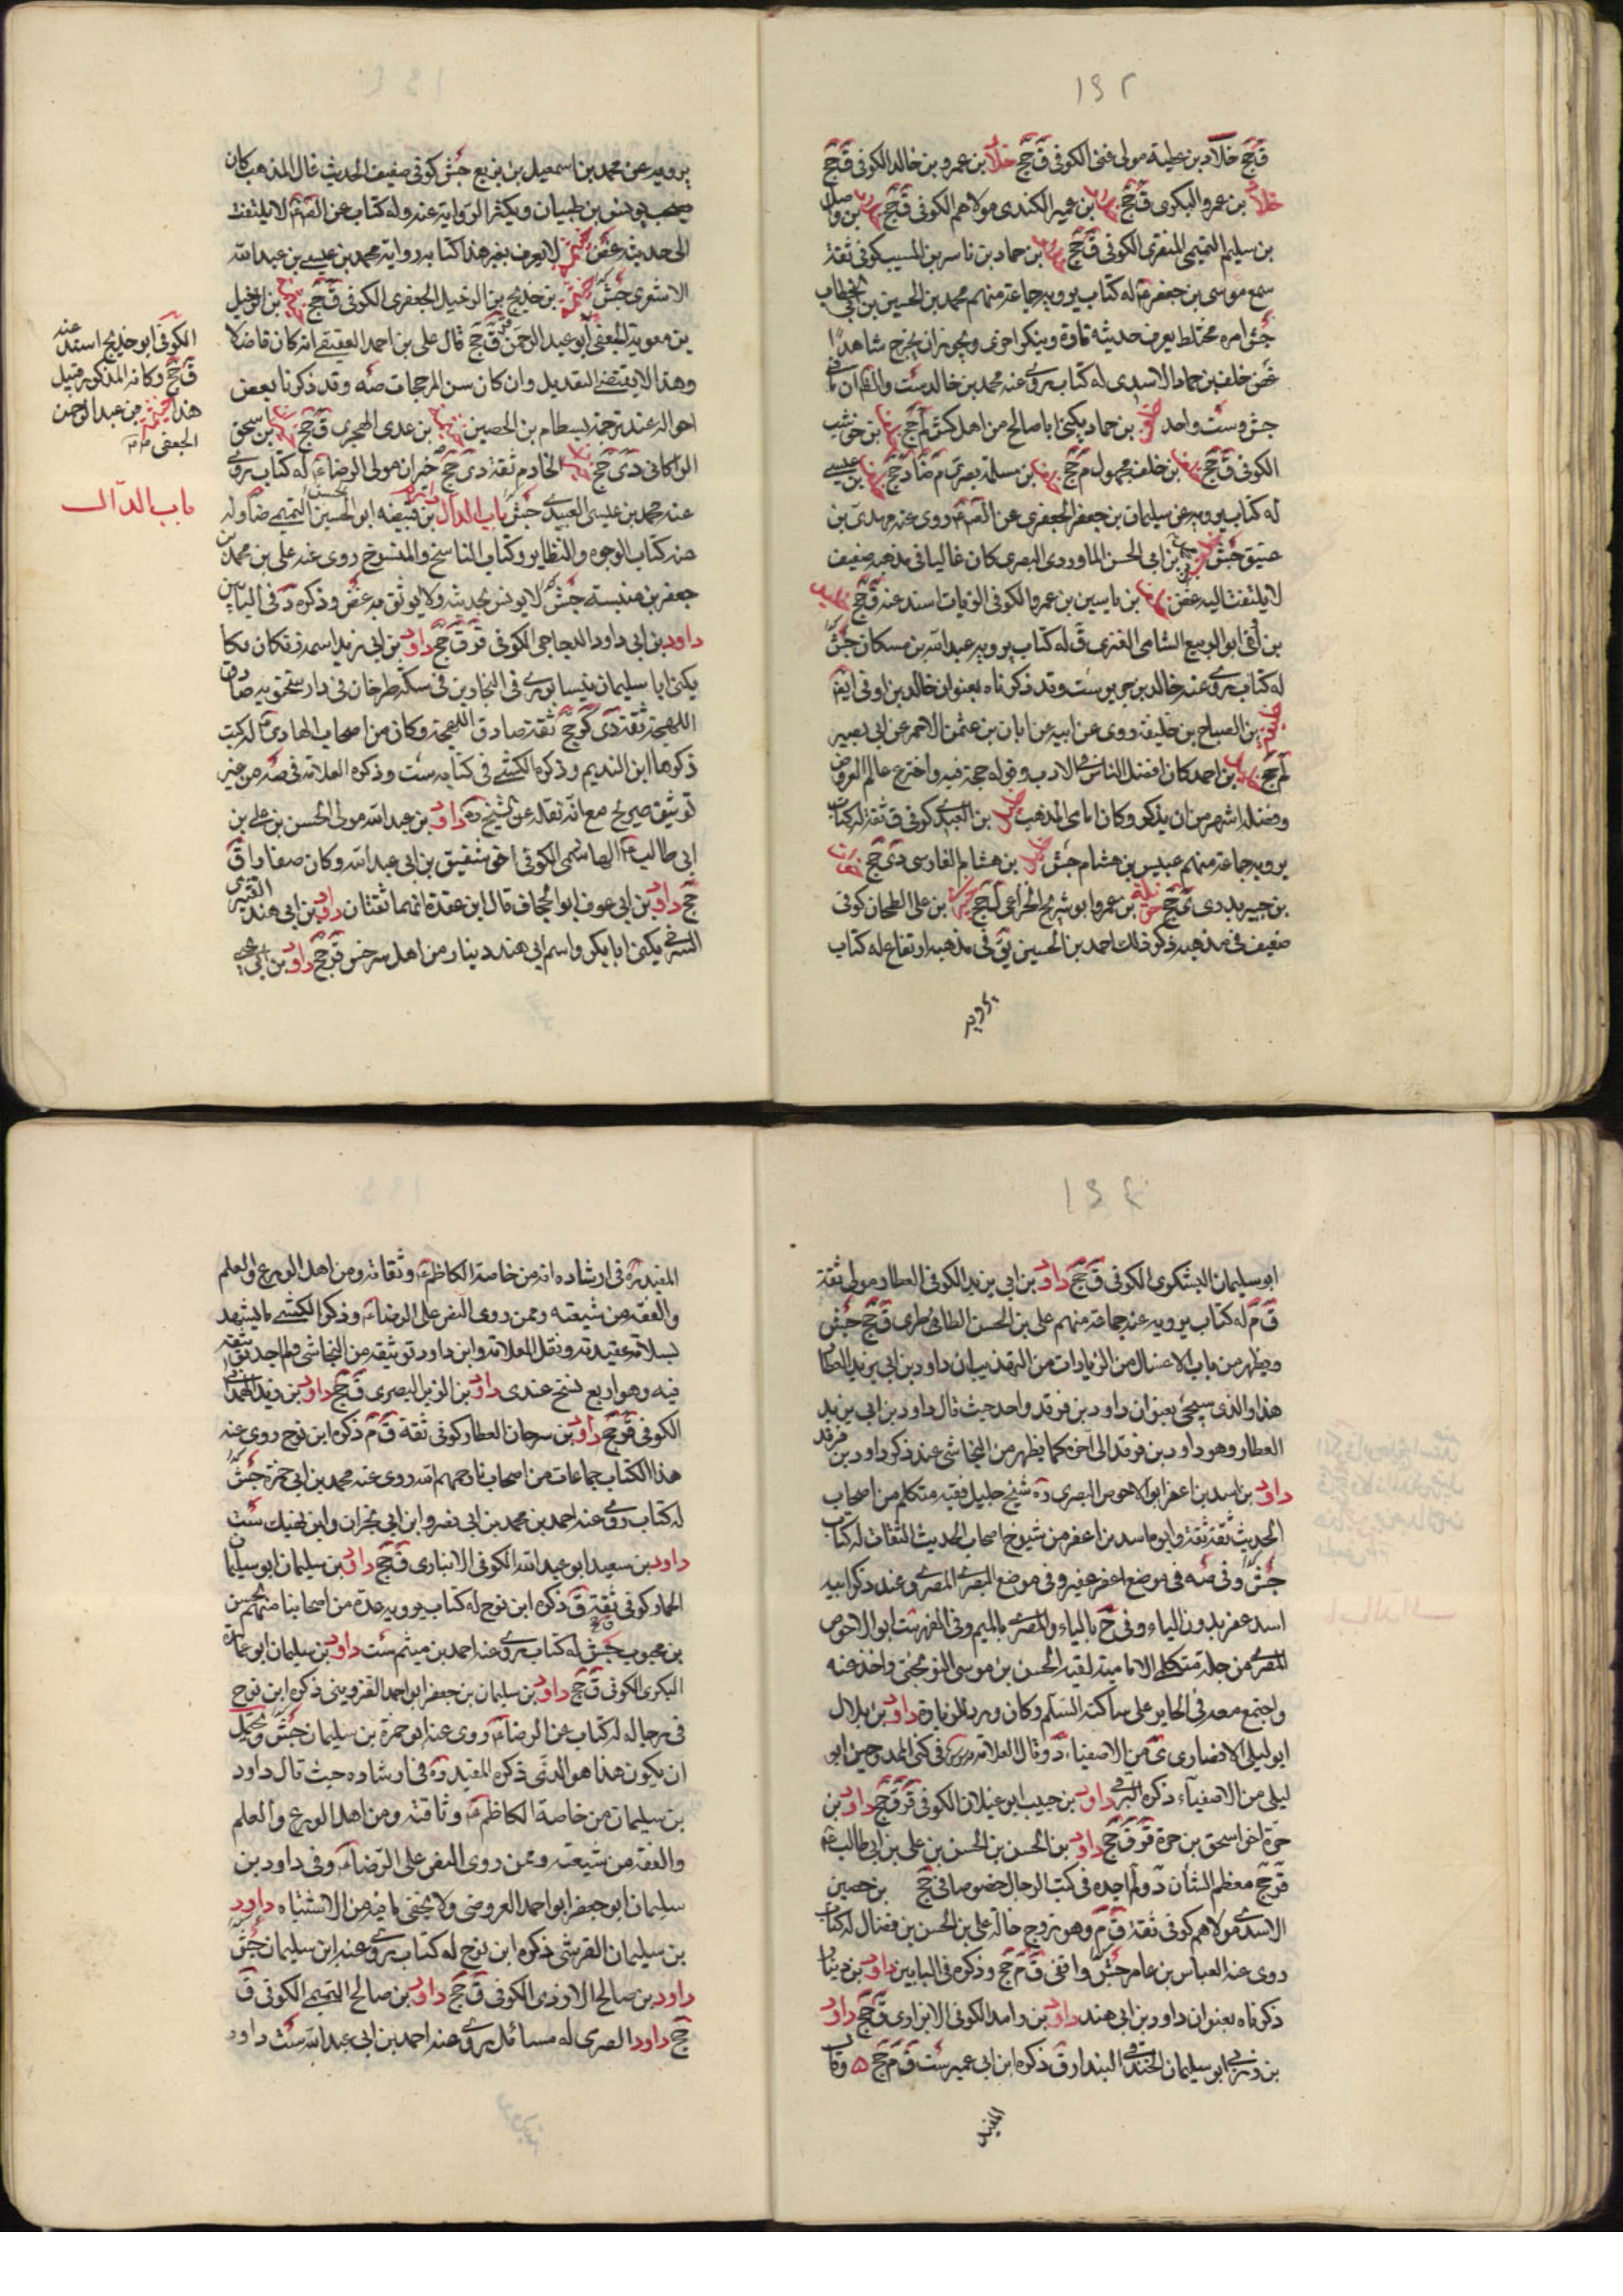 ١٩٢
ق جخ خلاد بن عطية مولى غنى الكوفى ق جخ خلاد بن عمرو بن خالد الكوفى ق جخ
خلاد بن عمرو البكرى ق جخ بن عمير الكندى مولاهم الكوفى ق جخ بن واصل
بن سليم التميمى المنقرى الكوفى ق جخ بن حماد بن ناسر بن المسيب كوفى ثقة
سمع موسى بن جعفر ع له كتاب يرويه جماعة منهم محمد بن الحسين بن ابى الخطاب
جش امره مختلط يعرف حديثه تارة وينكر اخرى ويجوز ان يخرج شاهدا
غض خلف بن حماد الاسدى له كتاب روى عنه محمد بن خالد ست والظ ان ما فى
جش وست واحد خلف بن حماد يكنى ابا صالح من اهل كش لم جخ بن حوشب
الكوفى ق جخ بن خلف مجهول م جخ بن مسلمة بصرى م ضا د جخ بن عيسى
له كتاب يرويه عن سليمان بن جعفر الجعفرى عن الصم روى عنه مهدى بن
عتيق جش بن ابى الحسن الماوردى البصرى كان غاليا فى مذهبه ضعيف
لا يلتفت اليه غض بن ياسين بن عمرو الكوفى الزيات اسند عنه ق جخ
بن اوفى ابو الربيع الشامى العنزى ق له كتاب يرويه عبد الله بن مسكان جش
له كتاب روى عنه خالد بن جرير ست وقد ذكرناه بعنوان خالد بن اوفى ايضا
خليفة بن الصباح بن خليفة روى عن ابيه عن ابان بن عثمن الاحمر عن ابى بصير
لم جخ بن احمد كان افضل الناس فى الادب وقوله حجة فيه واخترع علم العروض
وفضله اشهر من ان يذكر وكان امامى المذهب خليل بن العبدى كوفى ق ثقة له كتاب
يرويه جماعة منهم عبيس بن هشام جش خليل بن هشام الفارسى دى جخ
بن جبير بدرى ى جخ بن عمرو ابو شريح الخزاعى ل جخ بن على الطحان كوفى
ضعيف فى مذهبه ذكر ذلك احمد بن الحسين يق فى مذهبه ارتفاع له كتاب
يرويه
يرويه عن محمد بن اسمعيل بن بزيع جش كوفى ضعيف الحديث غال المذهب كان
يصحب يونس بن ظبيان ويكثر الرواية عنه وله كتاب عن الصم لا يلتفت
الى حديثه غض لا يعرف بغير هذا كتابه رواية محمد بن عيسى بن عبد الله
الاشعرى جش بن خديج بن الرحيل الجعفرى الكوفى ق جخ بن الرحيل
بن معوية الجعفى ابو عبد الرحمن ق جخ قال على بن احمد العقيقى انه كان فاضلا
وهذا لا يقتضى التعديل وان كان من المرجحات صه وقد ذكرنا بعض
احواله عند ترجمة بسطام بن الحصين بن عدى الهجرى ق جخ بن اسحق
الراكانى دى جخ الخادم ثقة دى جخ خيران مولى الرضا ع له كتاب روى
عنه محمد بن عيسى العبيدى جش باب الدال بن قبيصة ابو الحسن التميمى ضا وله
عنه كتاب الوجوه والنظاير وكتاب الناسخ والمنسوخ روى عنه على بن محمد بن
جعفر بن عنبسة جش لا يونس بحديثه ولا يوثق به غض وذكره د فى البابين
داود بن ابى داود الدجاجى الكوفى قر ق جخ داود بن ابى زيد اسمه زنكان بكا
يكنى ابا سليمان نيسابورى فى النجارين فى سكة طرخان فى دار سختويه صادق
اللهجة ثقة دى كر جخ ثقة صادق اللهجة وكان من اصحاب الهادى ع له كتب
ذكرها ابن النديم وذكره الكشى فى كتابه ست وذكره العلامة فى صه من غير
توثيق صريح مع انه نقله عن الشيخ ره داود بن عبد الله مولى الحسن بن على بن
ابى طالب ع الهاشمى الكوفى اخو شقيق بن ابى عبد الله وكان صفارا ق
جخ داود بن ابى عوف ابو الجحاف قال ابن عقدة انهما ثقتان داود بن ابى هند القشيرى
السرخسى يكنى ابا بكر واسم ابى هند دينار من اهل سرخس قر جخ داود بن ابى يحيى
الكوفى ابو خديج اسند عنه
ق جخ وكانه المذكور قبيل
هذا خيثمة بن عبد الرحمن
الجعفى
باب الدال
١٩٤
ابو سليمان اليشكرى الكوفى ق جخ داود بن ابى يزيد الكوفى العطار مولى ثقة
ق م له كتاب يرويه عنه جماعة منهم على بن الحسن الطائى الطاطرى ق جخ جش
ويظهر من باب الاغسال من الزيادات من التهذيب ان داود بن ابى يزيد العطار
هذا والذى سيجئ بعنوان داود بن فرقد واحد حيث قال داود بن ابى يزيد
العطار وهو داود بن فرقد الى آخره كما يظهر من النجاشى عند ذكر داود بن فرقد
داود بن اسد بن اعفر ابو الاحوص البصرى ره شيخ جليل فقيه متكلم من اصحاب
الحديث ثقة ثقة وابوه اسد بن اعفر من شيوخ اصحاب الحديث الثقات له كتاب
جش وفى صه فى موضع اعفر عفير وفى موضع البصرى المصرى وعند ذكر ابيه
اسد عفر بدون الياء وفى ح بالياء والمصرى بالميم وفى الفهرست ابو الاحوص
المصرى من جلة متكلمى الامامية لقيه الحسن بن موسى النوبختى واخذ عنه
واجتمع معه فى الحاير على ساكنه السلم وكان ورد للزيارة داود بن بلال
ابو ليلى الانصارى ى من الاصفياء د وقال العلامة فى كنى الممدوحين ابو
ليلى من الاصفياء ذكره البرقى داود بن حبيب ابو غيلان الكوفى قر ق جخ داود بن
حرة اخى اسحق بن حرة قر ق جخ داود بن الحسن بن الحسن بن على بن ابى طالب ع
قر جخ معظم الشان د ولم اجده فى كتب الرجال خصوصا فى جخ بن حصين
الاسدى مولاهم كوفى ثقة ق م وهو زوج خالة على بن الحسن بن فضال له كتاب
روى عنه العباس بن عامر جش واقفى ق م جخ وذكره فى البابين داود بن دينار
ذكرناه بعنوان داود بن ابى هند داود بن راشد الكوفى الابزارى ق جخ داود
بن زربى ابو سليمان الخندقى البندار ق ذكره ابن ابى عمير ست ق م جخ وقال
المفيد
المفيد ره فى ارشاده انه من خاصة الكاظم ع وثقاته ومن اهل الورع والعلم
والفقه من شيعته وممن روى النص على الرضا ع وذكر الكشى ما يشهد
بسلامة عقيدته ونقل العلامة وابن داود توثيقه من النجاشى ولم اجد توثيقه
فيه وهو اربع نسخ عندى داود بن الزبل البصرى ق جخ داود بن زيد الهمدانى
الكوفى قر جخ داود بن سرحان العطار كوفى ثقة ق م ذكره ابن نوح روى عنه
هذا الكتاب جماعات من اصحابنا رحمهم الله روى عنه محمد بن ابى حمزة جش
له كتاب روى عنه احمد بن محمد بن ابى نصر وابن ابى نجران وابن نهيك ست
داود بن سعيد ابو عبد الله الكوفى الانبارى ق جخ داود بن سليمان ابو سليمان
الحمار كوفى ثقة ق ذكره ابن نوح له كتاب يرويه عدة من اصحابنا منهم الحسن
بن محبوب جش له كتاب روى عنه احمد بن ميثم ست داود بن سليمان ابو عمارة
البكرى الكوفى ق جخ داود بن سليمان بن جعفر ابو احمد القزوينى ذكره ابن نوح
فى رجاله له كتاب عن الرضا ع روى عنه ابو حمزة بن سليمان جش ويحتمل
ان يكون هذا هو الذى ذكره المفيد ره فى ارشاده حيث قال داود
بن سليمان من خاصة الكاظم ع وثاقته ومن اهل الورع والعلم
والفقه من شيعته وممن روى النص على الرضا ع وفى داود بن
سليمان ابو جعفر ابو احمد العروضى ولا يخفى ما فيه من الاشتباه داود
بن سليمان القرشى ذكره ابن نوح له كتاب روى عنه ابن سليمان جش
داود بن صالح الازدى الكوفى ق جخ داود بن صالح التميمى الكوفى ق
جخ داود الصرمى له مسائل روى عنه احمد بن ابى عبد الله ست داود